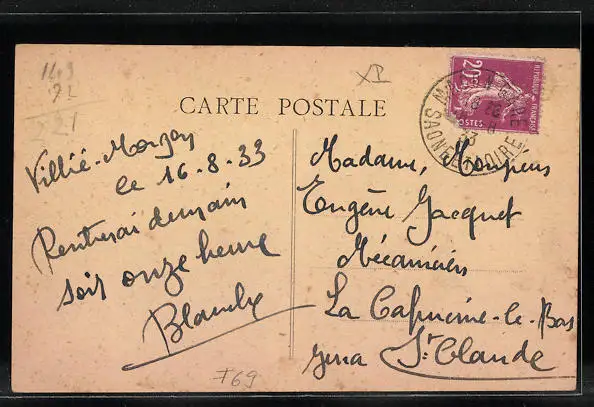 149
92
XP
CARTE POSTALE
REPUBLIQUE FRANÇAISE
20c
POSTES
Villié-Morgon
le 16-8-33
Rentrerai demain
soir onze heure
Blanche
Madame, Monsieur
Eugène Jacquet
Mécanicien
La Capucine-le-Bas
Jura St Claude
769